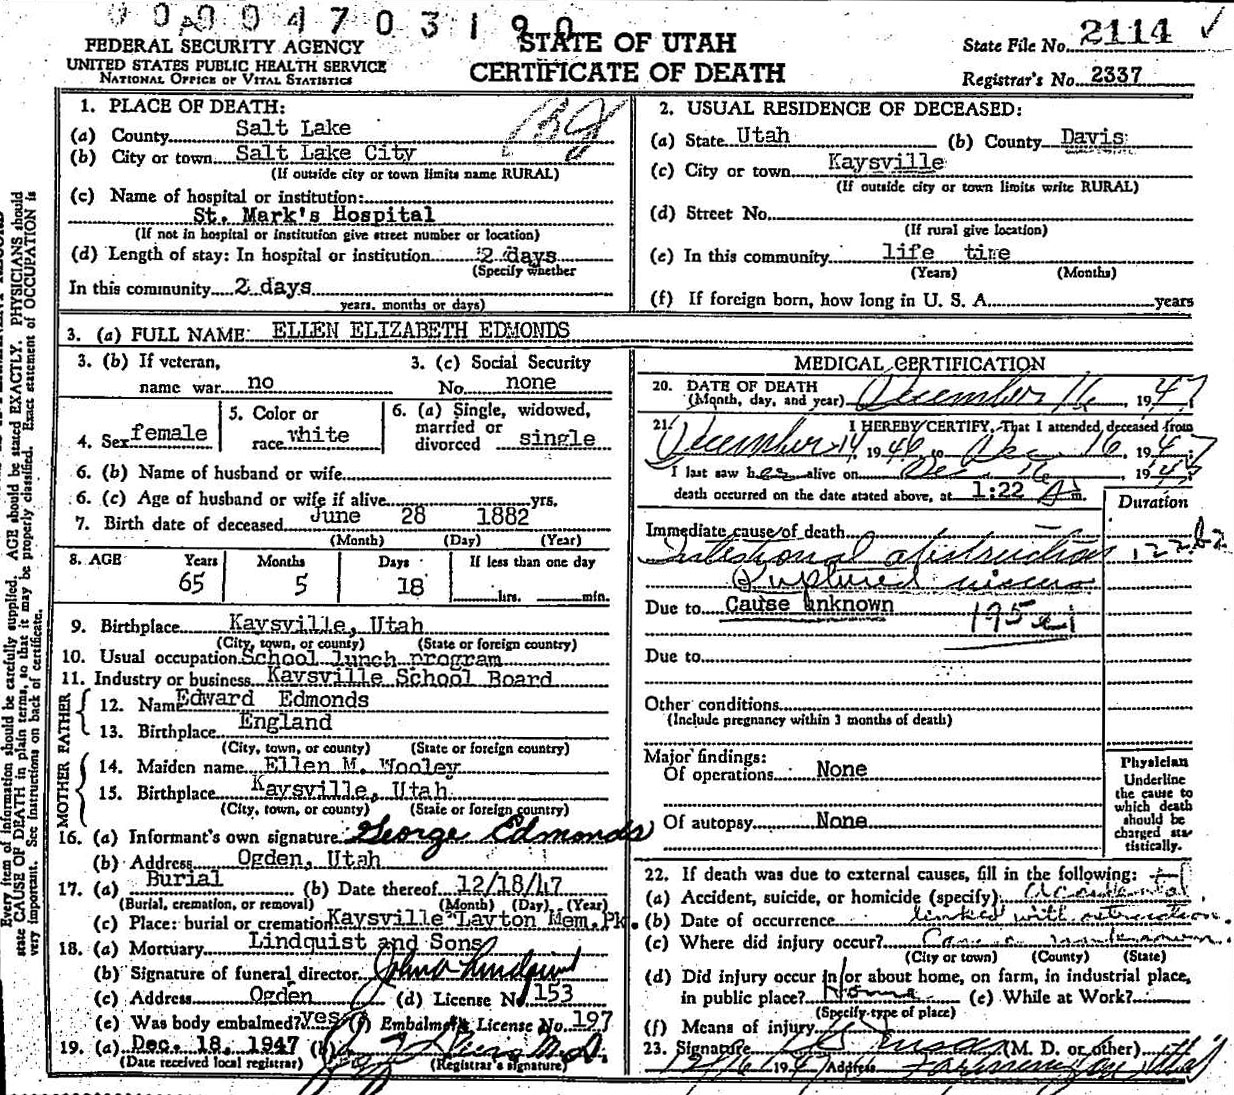 0 0 0 0 4 7 0 3 1 9 0
FEDERAL SECURITY AGENCY
UNITED STATES PUBLIC HEALTH SERVICE
NATIONAL OFFICE OF VITAL STATISTICS
STATE OF UTAH
CERTIFICATE OF DEATH
State File No. 2114
Registrar's No. 2337
Every item of information should be carefully supplied. AGE should be stated EXACTLY. PHYSICIANS should
state CAUSE OF DEATH in plain terms, so that it may be properly classified. Exact statement of OCCUPATION is
very important. See instructions on back of certificate.
1. PLACE OF DEATH:
(a) County Salt Lake
(b) City or town Salt Lake City
(If outside city or town limits name RURAL)
(c) Name of hospital or institution:
St. Mark's Hospital
(If not in hospital or institution give street number or location)
(d) Length of stay: In hospital or institution 2 days
(Specify whether
In this community 2 days
years, months or days)
2. USUAL RESIDENCE OF DECEASED:
(a) State Utah (b) County Davis
(c) City or town Kaysville
(If outside city or town limits write RURAL)
(d) Street No.
(If rural give location)
(e) In this community life time
(Years) (Months)
(f) If foreign born, how long in U. S. A. years
3. (a) FULL NAME: ELLEN ELIZABETH EDMONDS
3. (b) If veteran,
name war no
3. (c) Social Security
No. none
4. Sex female
5. Color or
race white
6. (a) Single, widowed,
married or
divorced single
6. (b) Name of husband or wife
6. (c) Age of husband or wife if alive yrs.
7. Birth date of deceased June 28 1882
(Month) (Day) (Year)
8. AGE Years Months Days If less than one day
65 5 18 hrs. min.
9. Birthplace Kaysville, Utah
(City, town, or county) (State or foreign country)
10. Usual occupation School lunch program
11. Industry or business Kaysville School Board
FATHER
12. Name Edward Edmonds
13. Birthplace England
(City, town, or county) (State or foreign country)
MOTHER
14. Maiden name Ellen M. Wooley
15. Birthplace Kaysville, Utah
(City, town, or county) (State or foreign country)
16. (a) Informant's own signature George Edmonds
(b) Address Ogden, Utah
17. (a) Burial (b) Date thereof 12/18/47
(Burial, cremation, or removal) (Month) (Day) (Year)
(c) Place: burial or cremation Kaysville Layton Mem. Pk.
18. (a) Mortuary Lindquist and Sons
(b) Signature of funeral director John A Lindquist
(c) Address Ogden (d) License No. 153
(e) Was body embalmed? yes (f) Embalmer's License No. 197
19. (a) Dec. 18, 1947 (b) M. D.
(Date received local registrar) (Registrar's signature)
MEDICAL CERTIFICATION
20. DATE OF DEATH
(Month, day, and year) December 16, 1947
21. I HEREBY CERTIFY, That I attended deceased from
December 14 1946 to Dec 16, 1947
I last saw her alive on Dec 16, 1947
death occurred on the date stated above, at 1:22 A m.
Duration
Immediate cause of death
Intestional obstruction 122b2
Ruptured viscus
Due to Cause unknown
Due to
Other conditions
(Include pregnancy within 3 months of death)
Major findings:
Of operations None
Of autopsy None
Physician
Underline
the cause to
which death
should be
charged sta-
tistically.
22. If death was due to external causes, fill in the following:
(a) Accident, suicide, or homicide (specify) accidental
(b) Date of occurrence linked with obstruction.
(c) Where did injury occur? Cause unknown.
(City or town) (County) (State)
(d) Did injury occur in or about home, on farm, in industrial place,
in public place? Home (e) While at Work?
(Specify type of place)
(f) Means of injury
23. Signature (M. D. or other)
12/16 1947 Address Farmington Utah